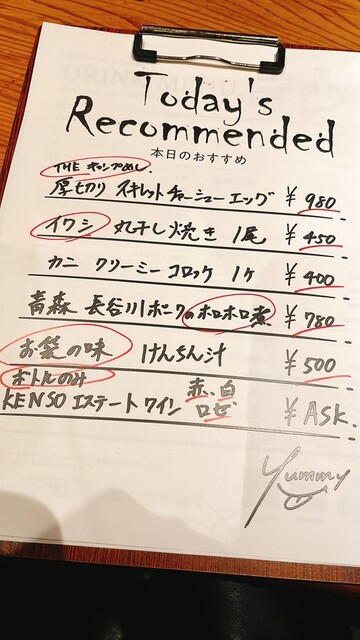 Today's
Recommended
本日のおすすめ
THE キャンプめし.
厚切り スキレットチャーシューエッグ ¥980
イワシ 丸干し焼き 1尾 ¥450
カニ クリーミーコロッケ 1ヶ ¥400
青森 長谷川ポークのホロホロ煮 ¥780
お袋の味 けんちん汁 ¥500
ボトルのみ
KENSO エステート ワイン 赤、白 ロゼ ¥ASK.
Yummy